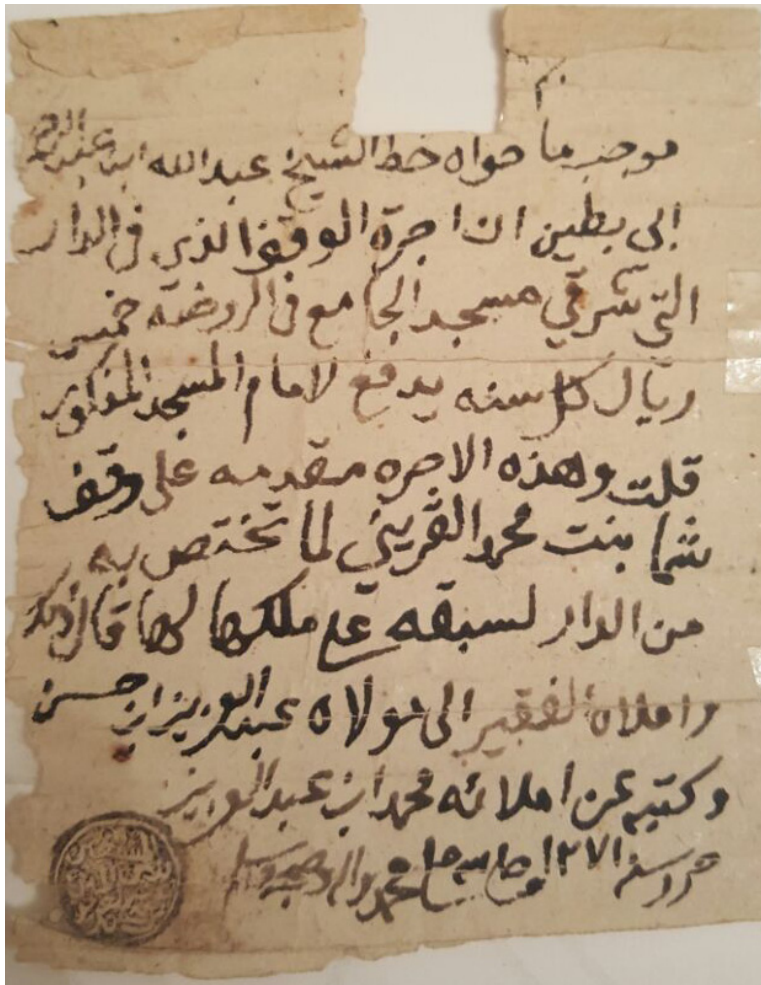 موجب ما حواه خط الشيخ عبدالله ابن عبدالرحمن
ابی بطين ان اجرة الوقف الذي في الدار
التي شرقي مسجد الجامع في الروضه خمس
ريال كل سنه يدفع لامام المسجد المذكور
قلت وهذه الاجره مقدمه على وقف
شما بنت محمد القريني لما تختص به
من الدار لسبقه على ملكها لها قال ذلك
واملاه الفقير الى مولاه عبدالعزيز ابن حسن
وكتبه عن املائه محمد ابن عبدالعزيز
حرر سنه ١٢٧١ وصلى الله على محمد واله وصحبه وسلم